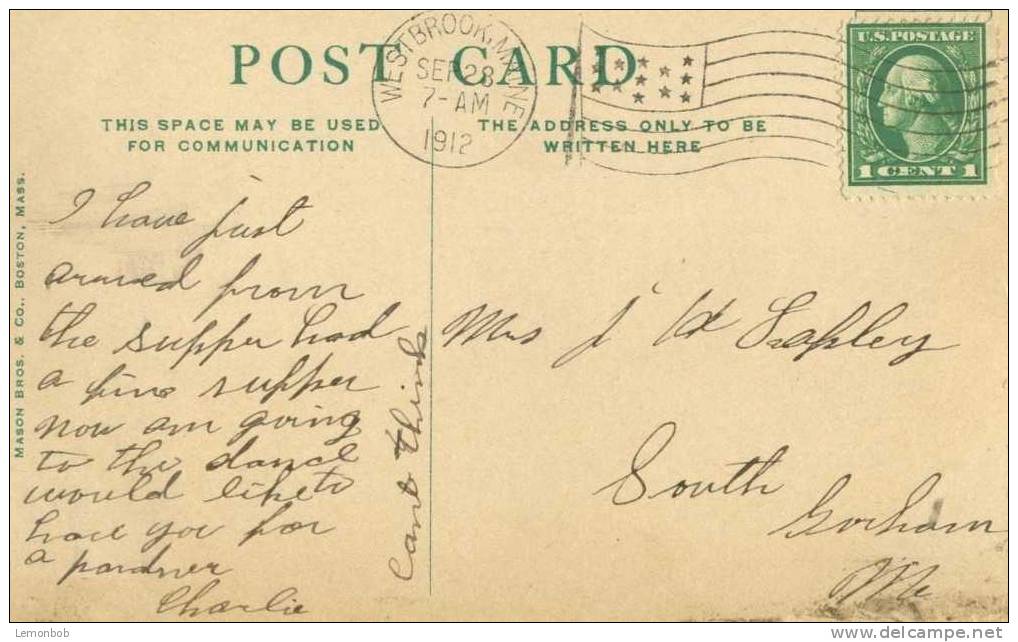 POST CARD
THIS SPACE MAY BE USED
FOR COMMUNICATION
THE ADDRESS ONLY TO BE
WRITTEN HERE
WESTBROOK, MAINE
SEP 28
7-AM
1912
U.S. POSTAGE
1 CENT 1
MASON BROS. & CO., BOSTON, MASS.
I have just
arrived from
the supper had
a fine supper
now am going
to the dance
would like to
have you for
a pardner
Charlie
Cant think
Mrs J H
South
Gorham
Me
Lemonbob
delcampe.net